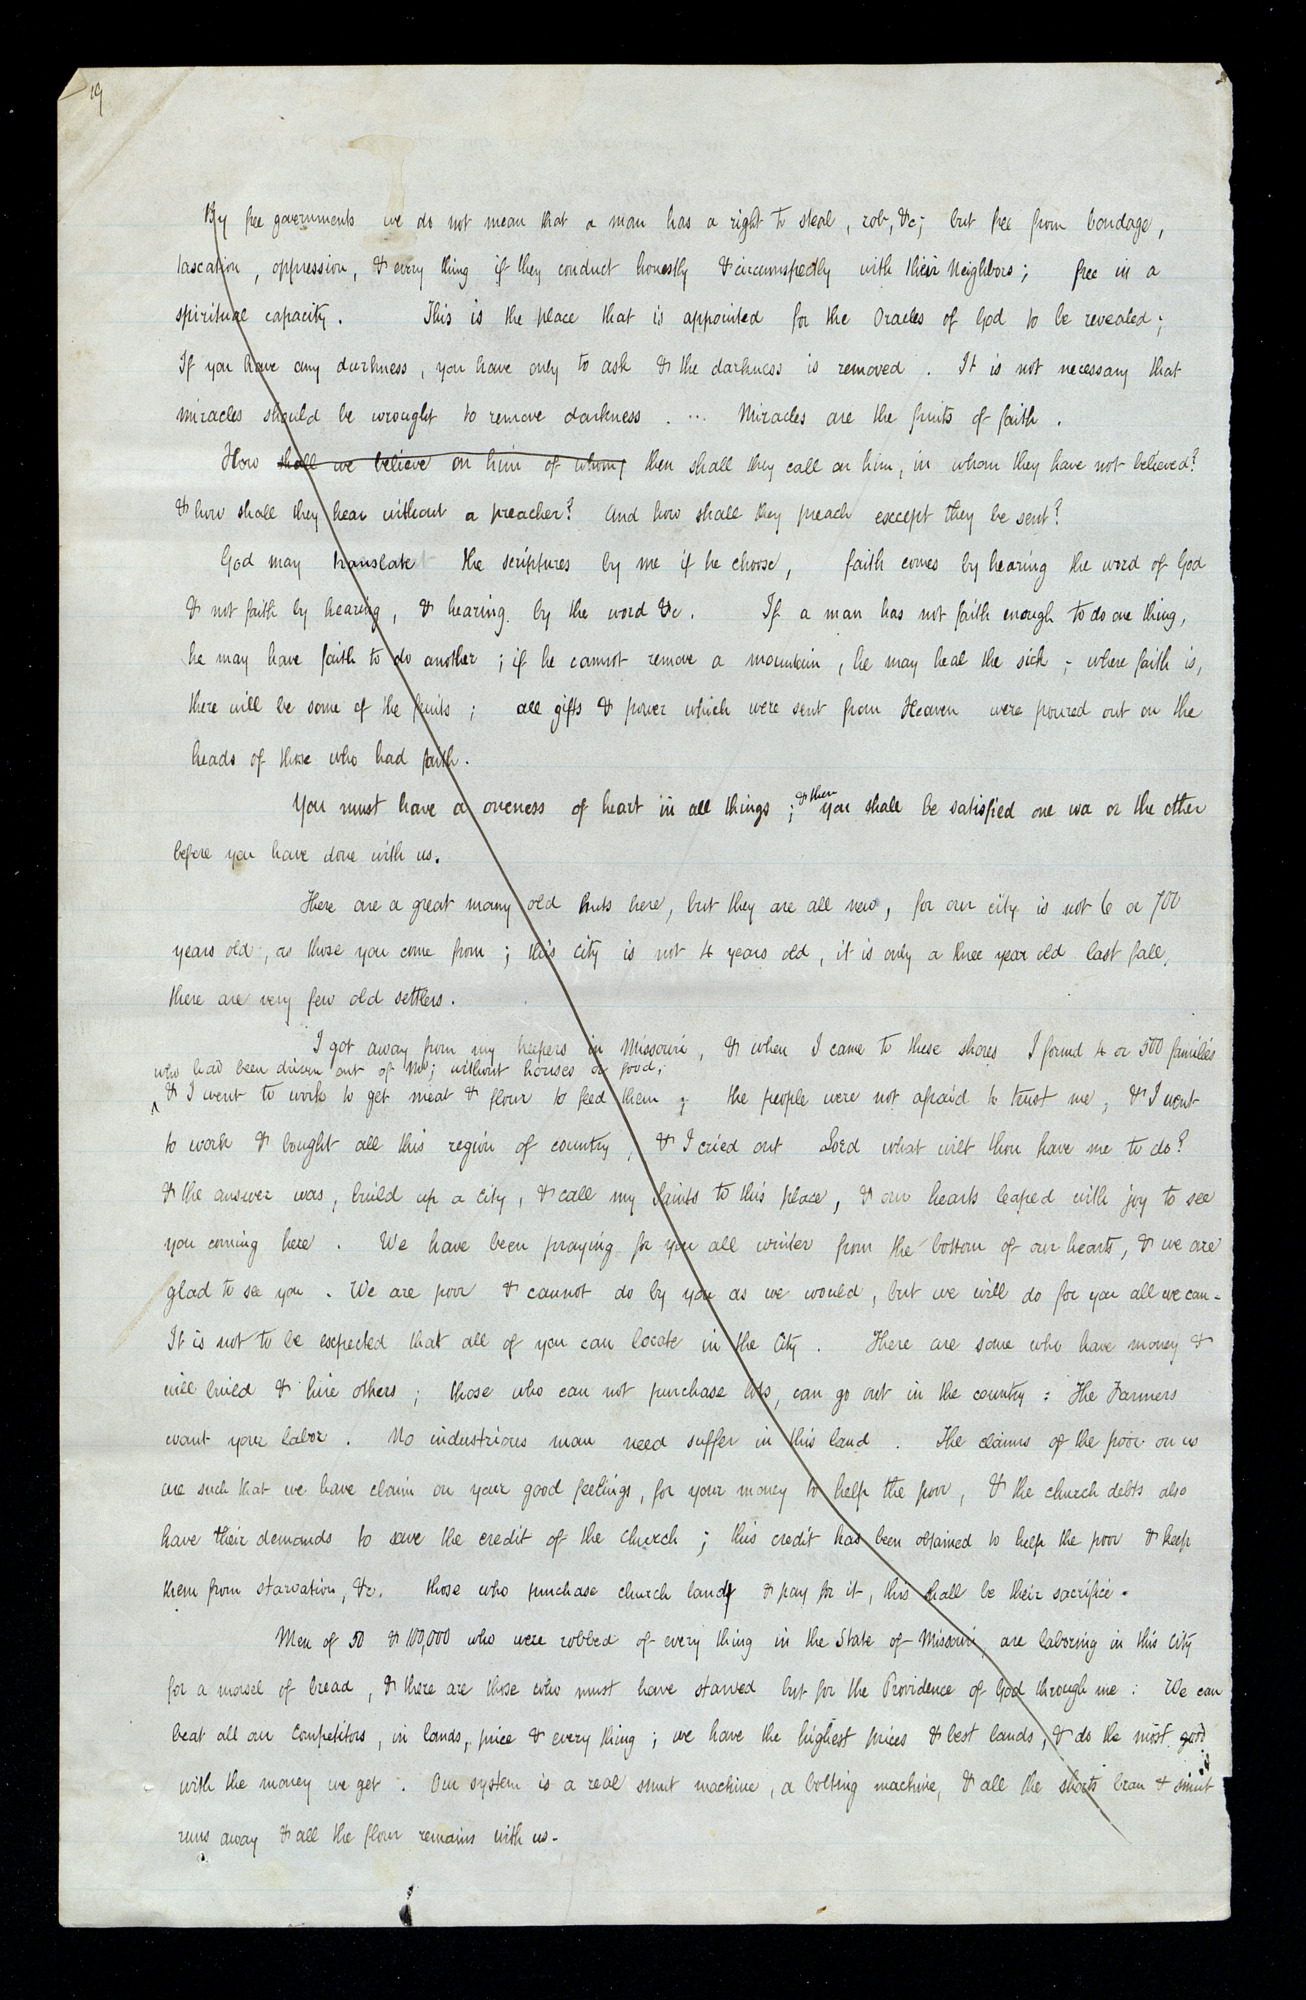 19
By free governments we do not mean that a man has a right to steal, rob, &c; but free from bondage,
taxcation, oppression, & every thing if they conduct honestly & circumspectly with their Neighbors; free in a
spiritual capacity. This is the place that is appointed for the Oracles of God to be revealed;
If you have any darkness, you have only to ask & the darkness is removed. It is not necessary that
miracles should be wrought to remove darkness. ... Miracles are the fruits of faith.
How shall we believe on him of whom, then shall they call on him, in whom they have not believed?
& how shall they hear without a preacher? And how shall they preach exccept they be sent?
God may translate the scriptures by me if he choose, faith comes by hearing the word of God
& not faith by hearing, & hearing by the word &c. If a man has not faith enough to do one thing,
he may have faith to do another; if he cannot remove a mountain, he may heal the sick; where faith is,
there will be some of the fruits; all gifts & power which were sent from Heaven were poured out on the
heads of those who had faith.
You must have a oneness of heart in all things; & then you shall be satisfied one wa or the other
before you have done with us.
There are a great many old huts here, but they are all new, for our city is not 6 or 700
years old, as those you come from; this city is not 4 years old, it is only a three year old last fall,
there are very few old settlers.
I got away from my keepers in Missouri, & when I came to these shores I found 4 or 500 families
who had been driven out of Mo; without houses or food;
& I went to work to get meat & flour to feed them; the people were not afraid to trust me, & I went
to work & bought all this region of country, & I cried out Lord what wilt thou have me to do?
& the answer was, build up a city, & call my Saints to this place, & our hearts leaped with joy to see
you coming here. We have been praying for you all winter from the bottom of our hearts, & we are
glad to see you. We are poor & cannot do by you as we would, but we will do for you all we can-
It is not to be exspected that all of you can locate in the City. There are some who have money &
will build & hire others; those who can not purchase lots, can go out in the country: The Farmers
want your labor. No industrious man need suffer in this land. The claims of the poor on us
are such that we have claim on your good feelings, for your money to help the poor, & the church debts also
have their demands to save the credit of the church; this credit has been obtained to help the poor & keep
them from starvation, &c. those who purchase church land & pay for it, this shall be their sacrifice.
Men of 50 & 100,000 who were robbed of every thing in the State of Missouri, are laboring in this city
for a morsel of bread, & there are those who must have starved but for the Providence of God through me: We can
beat all our competitors, in lands, price & every thing; we have the highest prices & best lands, & do the most good
with the money we get. Our system is a real smut machine, a bolting machine, & all the shorts bran & smut
runs away & all the flour remains with us-